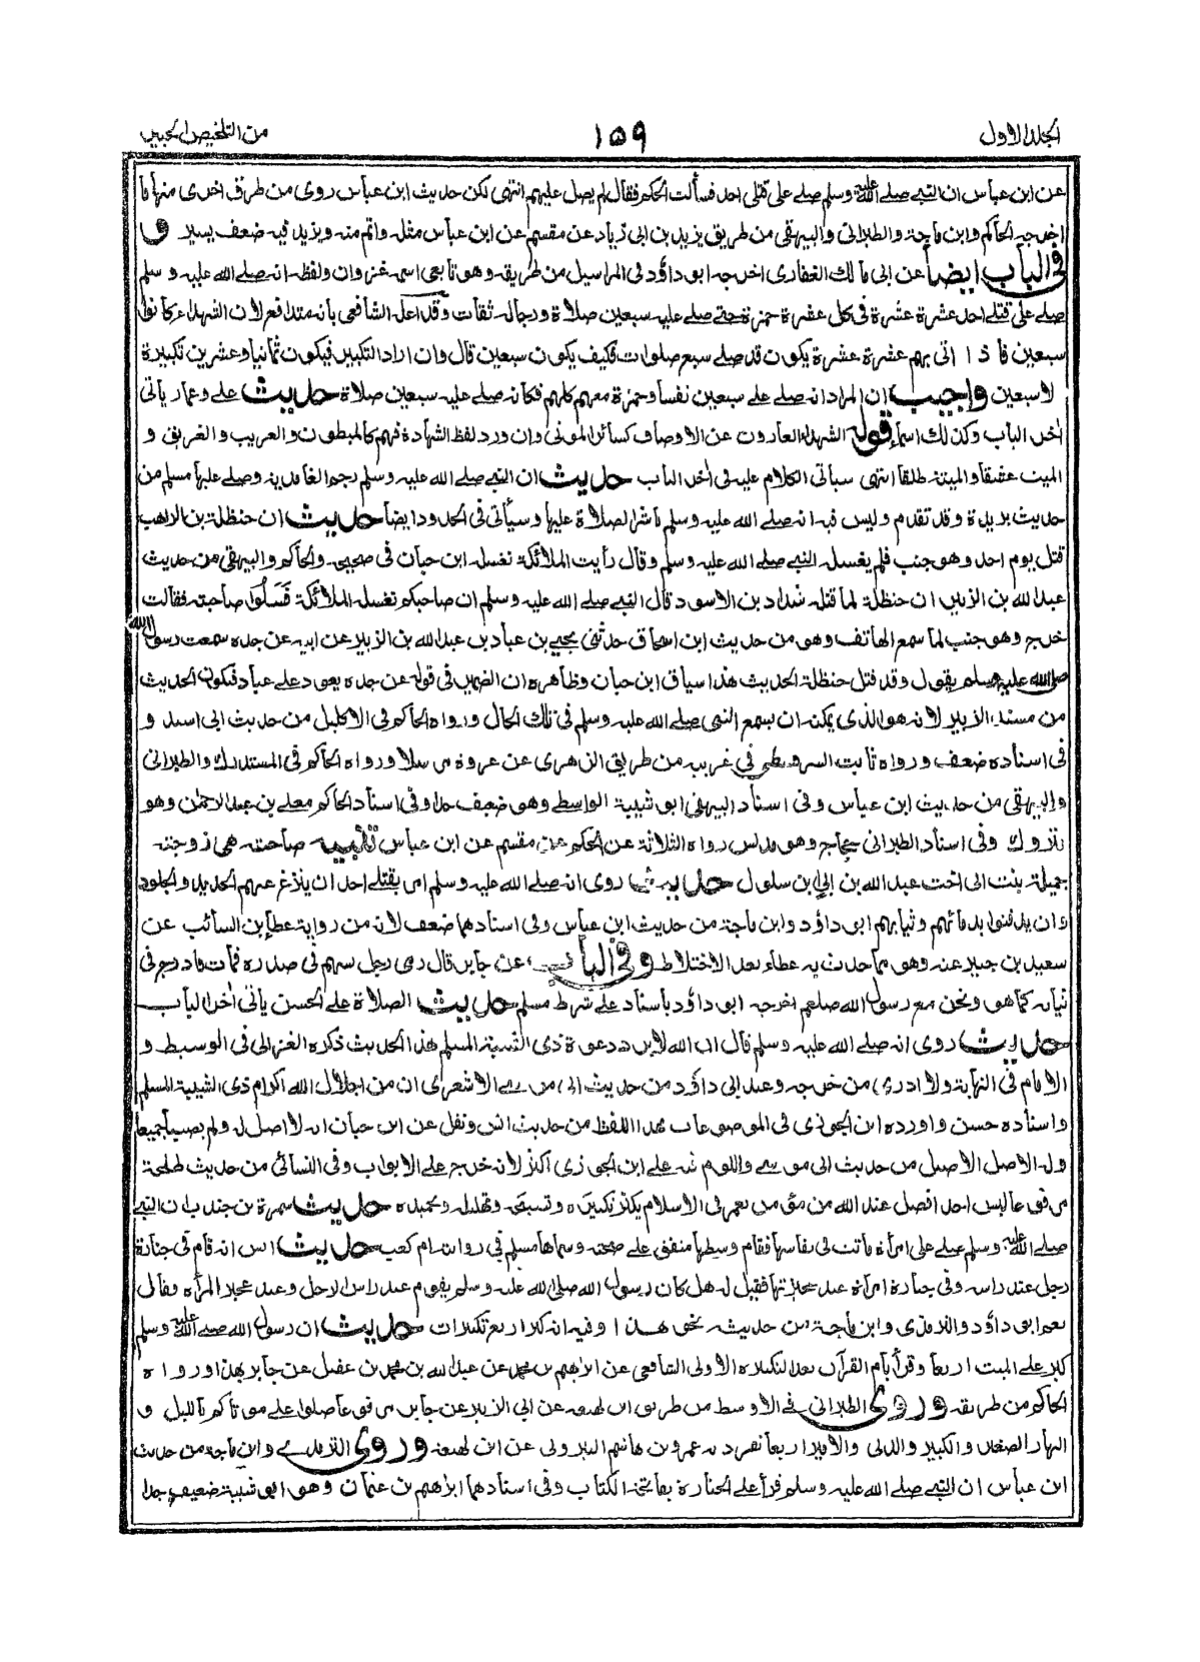 المجلد الاول ١٥٩ من التلخيص الحبير
عن ابن عباس ان النبي صلى الله عليه وسلم صلے على قتلى احد فسألت الحكم فقال لم يصل عليهم انتهى لكن حديث ابن عباس روى من طرق اخرى منها ما
اخرجه الحاكم وابن ماجة والطبرانى والبيهقى من طريق يزيد بن ابى زياد عن مقسم عن ابن عباس مثله واتم منه ويزيد فيه ضعف يسير و
فى الباب ايضا عن ابى مالك الغفارى اخرجه ابو داؤد فى المراسيل من طريقه وهو تابعى اسمه غزوان ولفظه انه صلے الله عليه وسلم
صلے على قتلے احد عشرة عشرة فى كل عشرة حمزة حتے صلے عليه سبعين صلاة ورجاله ثقات وقد اعله الشافعى بانه متدافع لان الشهداء كانوا
سبعين فاذا اتى بهم عشرة عشرة يكون قد صلے سبع صلوات فكيف يكون سبعين قال وان اراد التكبير فيكون ثمانيا وعشرين تكبيرة
لا سبعين واجيب ان المراد انه صلے على سبعين نفسا وحمزة معهم كلهم فكانه صلے عليه سبعين صلاة حديث علے وعمار ياتى
اخر الباب وكذلك اسماء قوله الشهداء العارون عن الاوصاف كسائر الموتى وان ورد لفظ الشهادة فهم كالمبطون والغريب والغريق و
الميت عشقا والميتة طلقا انتهى سياتى الكلام عليه فى اخر الباب حديث ان النبے صلے الله عليه وسلم رجم الغامدية وصلے عليها مسلم من
حديث بريدة وقد تقدم وليس فيه انه صلے الله عليه وسلم باشر الصلاة عليها وسيأتى فى الحدود ايضا حديث ان حنظلة بن الراهب
قتل يوم احد وهو جنب فلم يغسله النبے صلے الله عليه وسلم وقال رأيت الملائكة تغسله ابن حبان فى صحيحه والحاكم والبيهقى من حديث
عبد الله بن الزبير ان حنظلة لما قتله شداد بن الاسود قال النبے صلے الله عليه وسلم ان صاحبكم تغسله الملائكة فسلوا صاحبته فقالت
خرج وهو جنب لما سمع الهاتف وهو من حديث ابن اسحاق حدثنى يحيے بن عباد بن عبد الله بن الزبير عن ابيه عن جده سمعت رسول الله
صلى الله عليه وسلم يقول وقد قتل حنظلة الحديث هذا سياق ابن حبان وظاهره ان الضمير فى قوله عن جده يعود على عباد فيكون الحديث
من مسند الزبير لانه هو الذى يمكنه ان يسمع النبى صلے الله عليه وسلم فى تلك الحال ورواه الحاكم فى الاكليل من حديث ابى اسيد و
فى اسناده ضعف ورواه ثابت السرقسطى فى غريبه من طريق الزهرى عن عروة مرسلا ورواه الحاكم فى المستدرك والطبرانى
والبيهقى من حديث ابن عباس وفى اسناد البيهقى ابو شيبة الواسطے وهو ضعيف جدا وفى اسناد الحاكم معلے بن عبد الرحمٰن وهو
متروك وفى اسناد الطبرانى حجاج وهو مدلس رواه الثلاثة عن الحكم عن مقسم عن ابن عباس تنبيه صاحبته هى زوجته
جميلة بنت ابى اخت عبد الله بن ابى ابن سلول حديث روى انه صلے الله عليه وسلم امر بقتلے احد ان ينزع عنهم الحديد والجلود
وان يدفنوا بدمائهم وثيابهم ابو داؤد وابن ماجة من حديث ابن عباس وفى اسنادهما ضعف لانه من رواية عطاء بن السائب عن
سعيد بن جبير عنه وهو مما حدث به عطاء بعد الاختلاط وفى الباب عن جابر قال رمى رجل بسهم فى صدره فمات فادرج فى
ثيابه كما هو ونحن مع رسول الله صلعم اخرجه ابو داؤد باسناد على شرط مسلم حديث الصلاة على الحسن ياتى اخر الباب
حديث روى انه صلے الله عليه وسلم قال ان الله لا يرد دعوة ذى الشيبة المسلم هذا الحديث ذكره الغزالى فى الوسيط و
الامام فى النهاية ولا ادرى من خرجه وعند ابى داؤد من حديث ابى موسے الاشعرى ان من اجلال الله اكرام ذى الشيبة المسلم
واسناده حسن واورده ابن الجوزى فى الموضوعات بهذا اللفظ من حديث انس ونقل عن ابن حبان انه لا اصل له ولم يصيبا جميعا
وله الاصل الاصيل من حديث ابى موسے واللوم فيه على ابن الجوزى اكثر لانه خرج على الابواب وفى النسائى من حديث طلحة
مرفوعا ليس احد افضل عند الله من مؤمن يعمر فى الاسلام يكثر تكبيره وتسبيحه وتهليله وتحميده حديث سمرة بن جندب ان النبے
صلے الله عليه وسلم صلے على امرأة ماتت فى نفاسها فقام وسطها متفق على صحته وسماها مسلم فى رواية ام كعب حديث انس انه قام فى جنازة
رجل عند راسه وفى جنازة امرأة عند عجيزتها فقيل له هل كان رسول الله صلى الله عليه وسلم يقوم عند راس الرجل وعند عجيزة المرأة فقال
نعم ابو داؤد والترمذى وابن ماجة من حديثه نحو هذا وفيه انه كبر اربع تكبيرات حديث ان رسول الله صلے الله عليه وسلم
كبر على الميت اربعا وقرأ بام القرآن بعد التكبيرة الاولى الشافعى عن ابراهيم بن محمد عن عبد الله بن محمد بن عقيل عن جابر بهذا ورواه
الحاكم من طريقه وروى الطبرانى فى الاوسط من طريق ابن لهيعة عن ابى الزبير عن جابر مرفوعا صلوا على موتاكم بالليل و
النهار الصغير والكبير والدنى والامير اربعا تفرد به عمرو بن هاشم البيروتى عن ابن لهيعة وروى الترمذے وابن ماجة من حديث
ابن عباس ان النبے صلے الله عليه وسلم قرأ على الجنازة بفاتحة الكتاب وفى اسنادهما ابراهيم بن عثمان وهو ابو شيبة ضعيف جدا